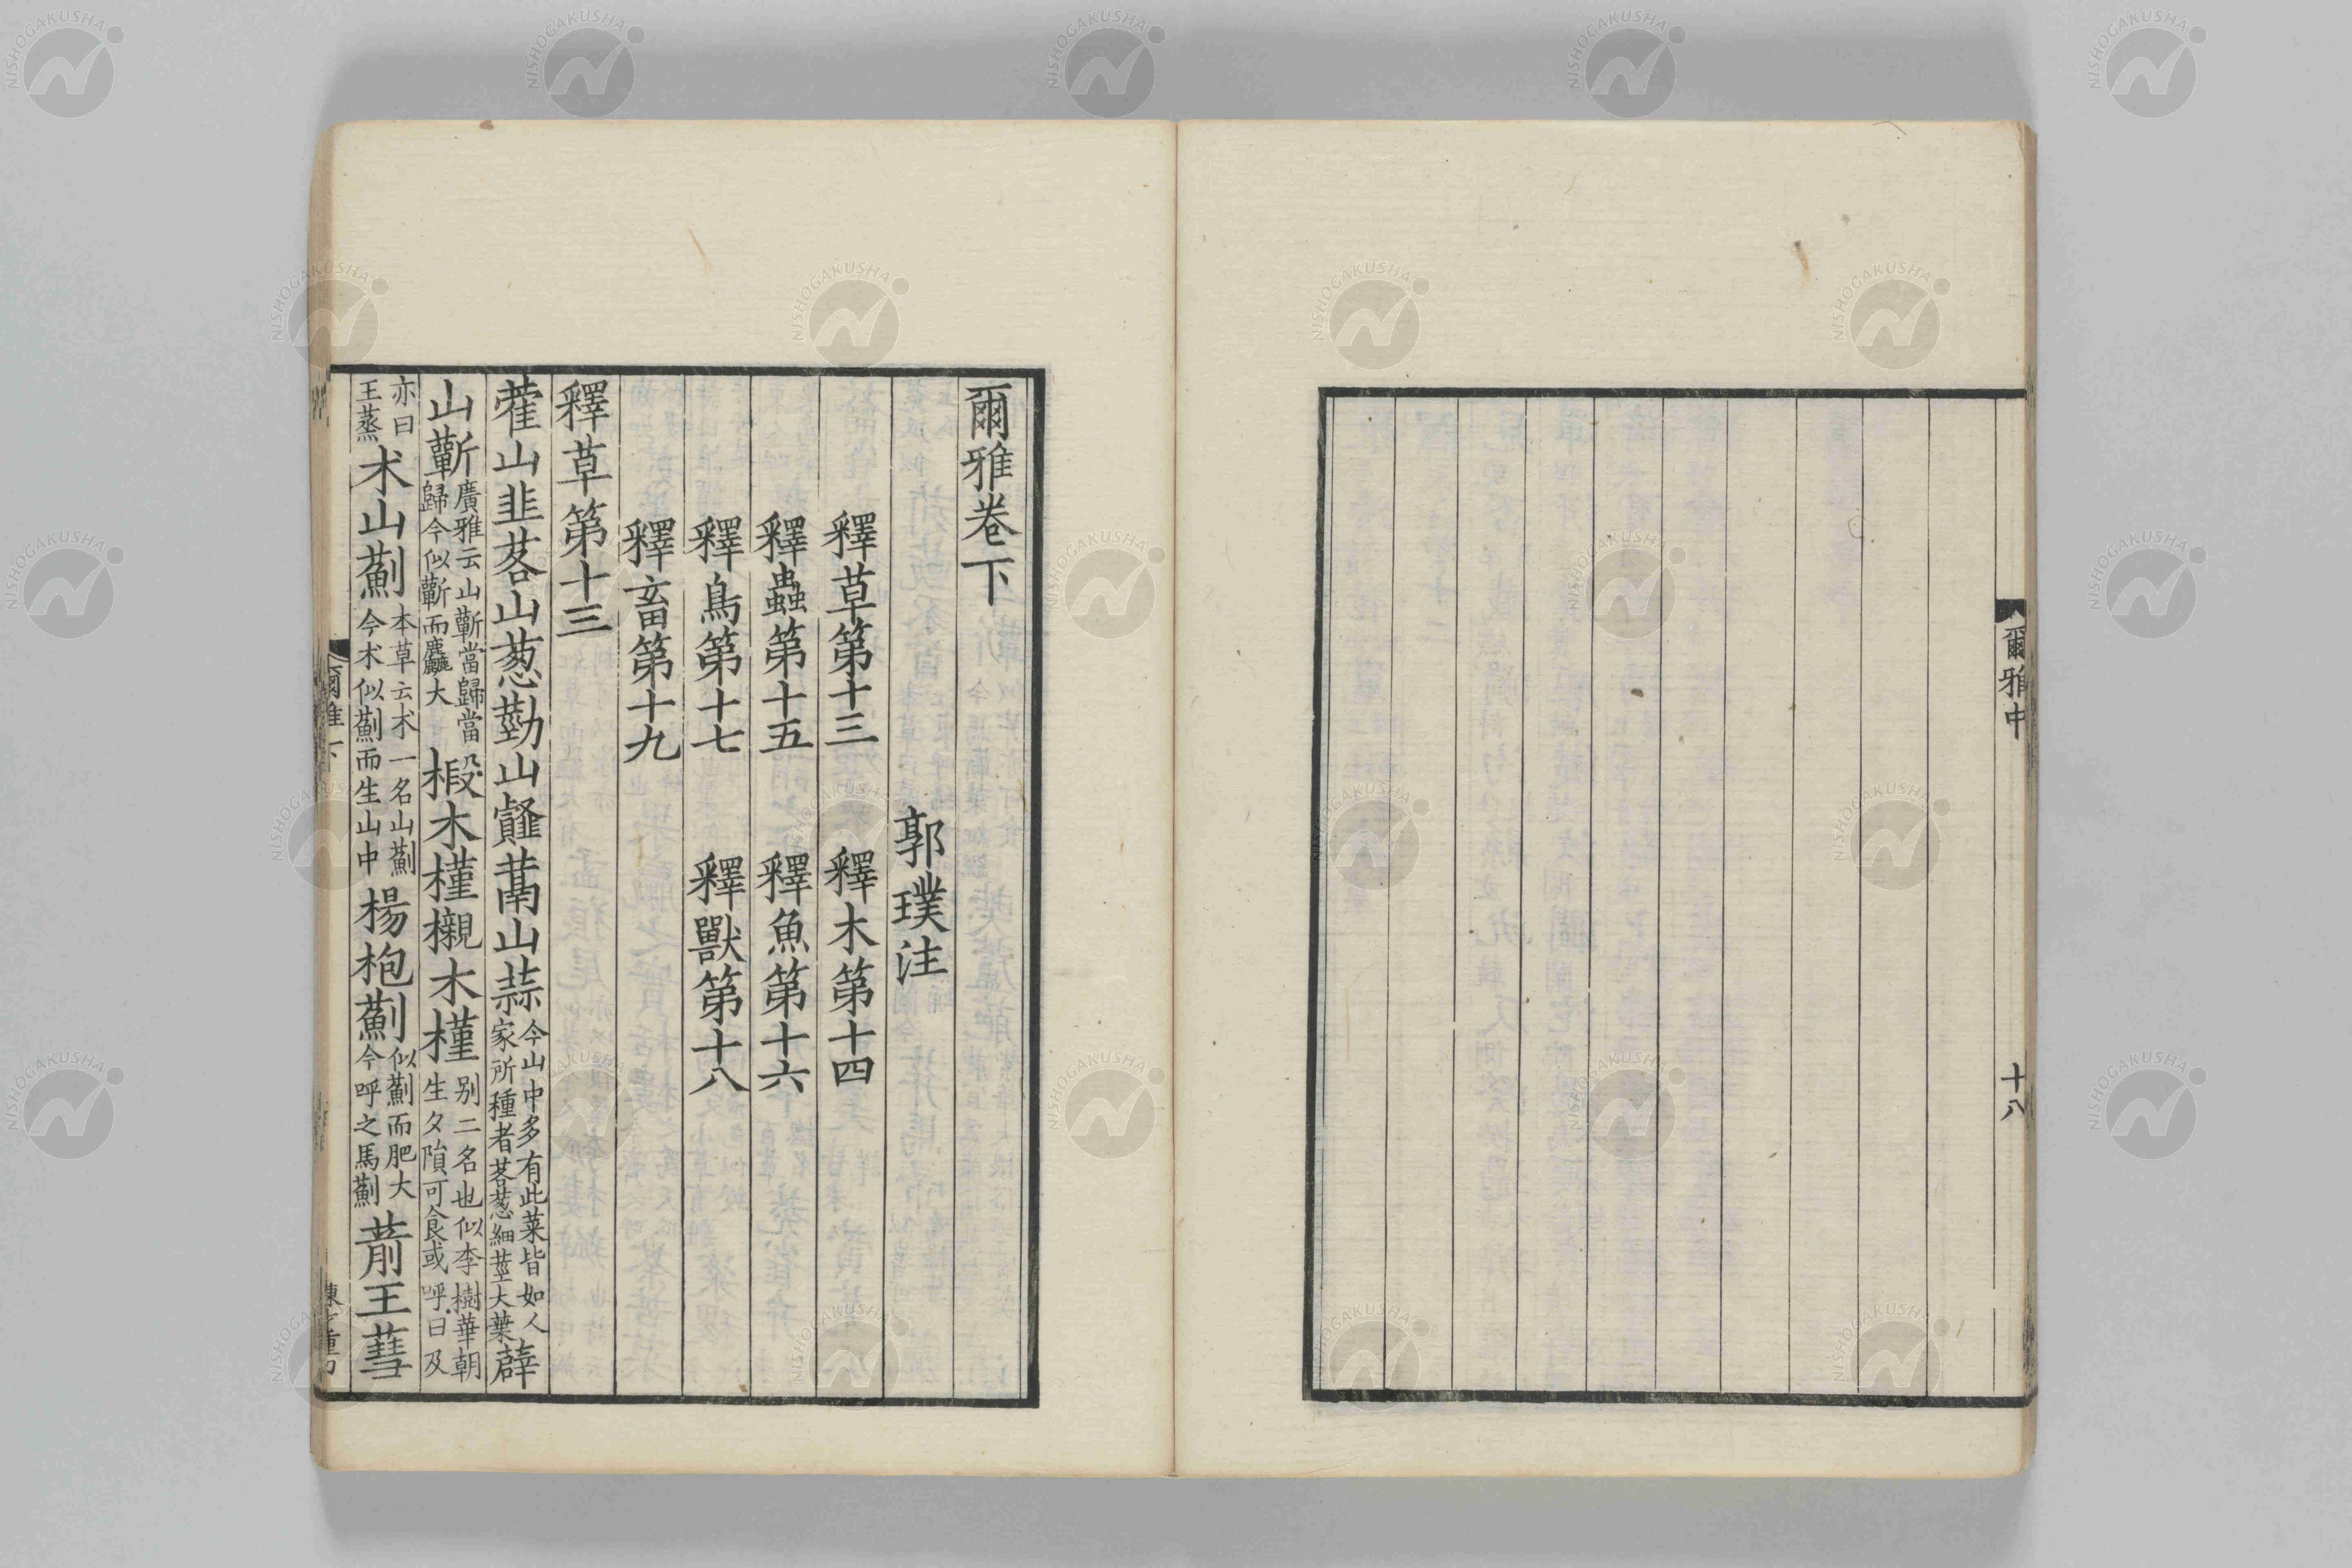 爾雅中
十八
爾雅卷下
郭璞注
釋草第十三 釋木第十四
釋蟲第十五 釋魚第十六
釋鳥第十七 釋獸第十八
釋畜第十九
釋草第十三
藿山韭茖山葱葝山䪥蒚山蒜今山中多有此菜皆如人家所種者茖葱細莖大葉薜
山蘄廣雅云山蘄當歸當歸今似蘄而麤大椴木槿櫬木槿别二名也似李樹華朝生夕隕可食或呼曰及
亦曰王蒸朮山薊本草云朮一名山薊今朮似薊而生山中楊枹薊似薊而肥大今呼之馬薊葥王蔧
爾雅下
NISHOGAKUSHA